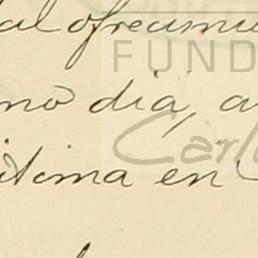 al ofrecimi
FUND
mo dia, a
Carlo
itima en